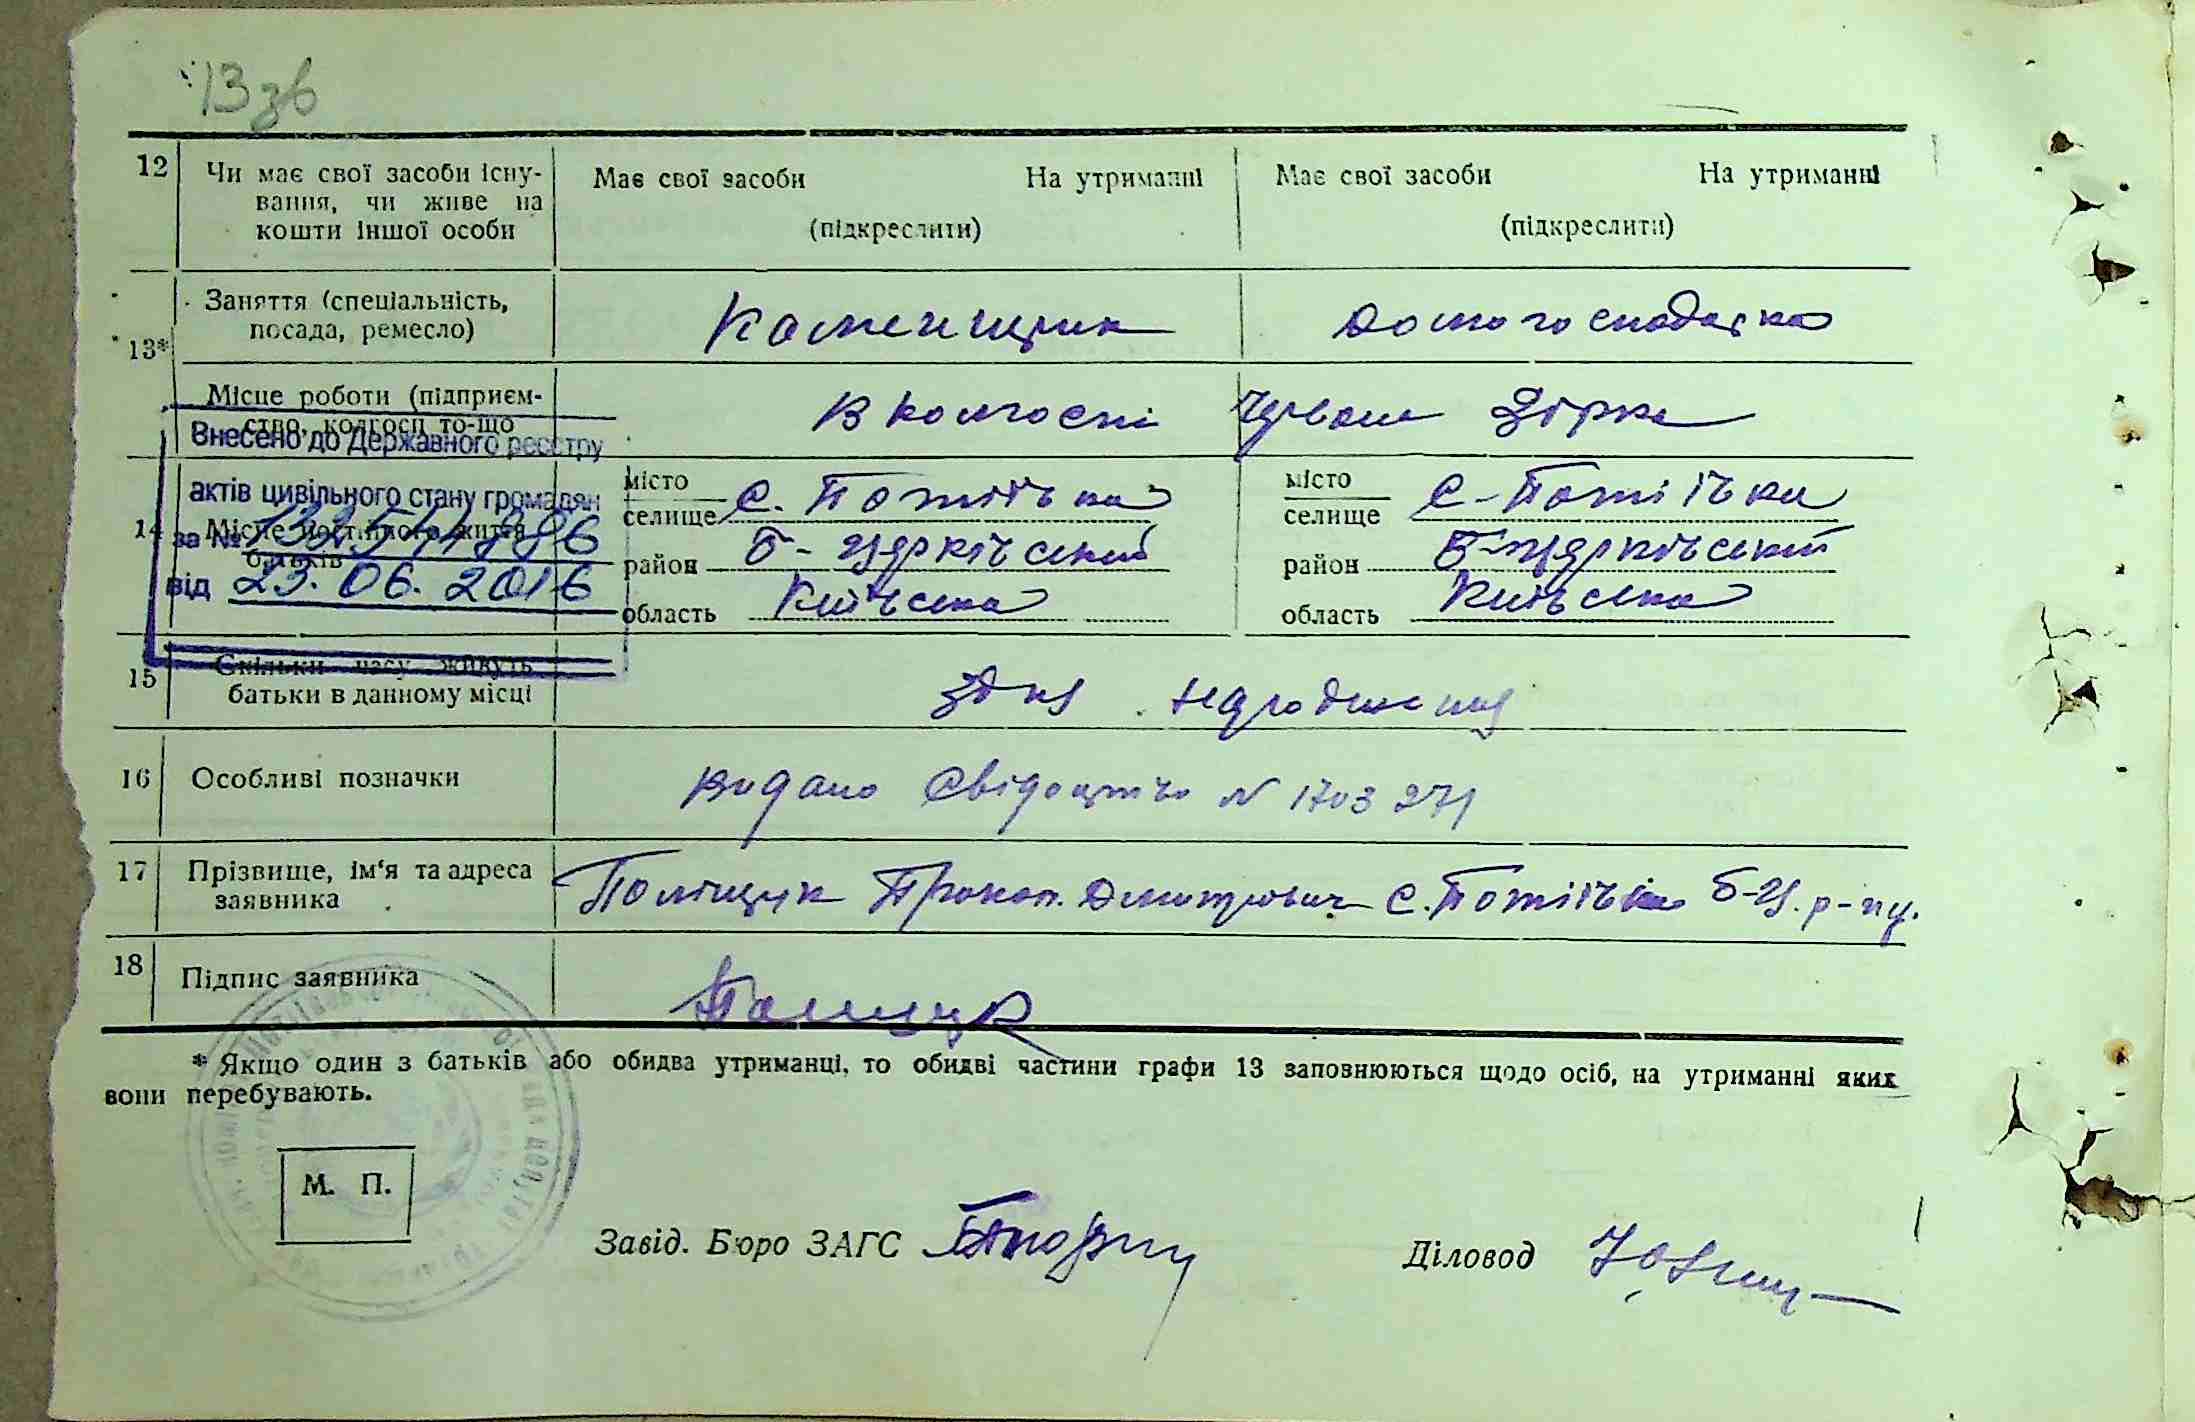 13 зв
12 Чи має свої засоби існу-
вання, чи живе на
кошти іншої особи
Має свої засоби На утриманні
(підкреслити)
Має свої засоби На утриманні
(підкреслити)
13* Заняття (спеціальність,
посада, ремесло)
Каменщик
домогосподарка
Місце роботи (підприєм-
ство, колгосп то-що
В колгоспі Червона Зірка
Внесено до Державного реєстру
актів цивільного стану громадян
за №
від 23.06.2016
14 Місце постійного життя
батьків
місто
селище с. Потіївка
район Б-Церківський
область Київська
місто
селище с-Потіївка
район Б-Церківський
область Київська
15 Скільки часу живуть
батьки в данному місці
з дня народження
16 Особливі позначки
Видано Свідоцтво N 1703271
17 Прізвище, ім'я та адреса
заявника
Поліщук Прокоп. Дмитрович с. Потіївка Б-Ц. р-ну.
18 Підпис заявника
Поліщук
* Якщо один з батьків або обидва утриманці, то обидві частини графи 13 заповнюються щодо осіб, на утриманні яких
вони перебувають.
М. П.
Завід. Бюро ЗАГС
Діловод